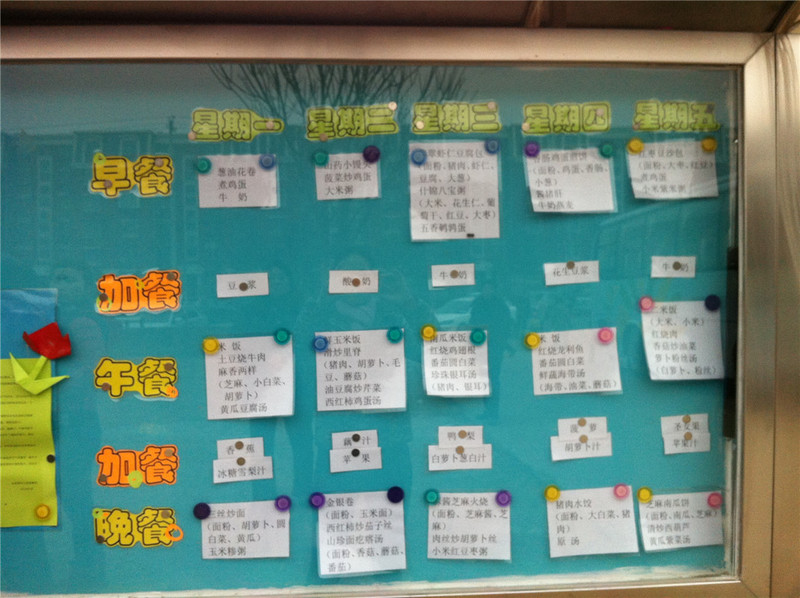 星期一 星期二 星期三 星期四 星期五
早餐
葱油花卷
煮鸡蛋
牛 奶
山药小馒
菠菜炒鸡蛋
大米粥
翠虾仁豆腐包
(面粉、猪肉、虾仁、
豆腐、大葱)
什锦八宝粥
(大米、花生仁、葡
萄干、红豆、大枣)
五香鹌鹑蛋
香肠鸡蛋煎饼
(面粉、鸡蛋、香肠、
小葱)
酱猪肝
牛奶燕麦
红枣豆沙包
(面粉、大枣、红豆)
煮鸡蛋
小米紫米粥
加餐
豆 浆
酸 奶
牛 奶
花生豆浆
牛 奶
午餐
米 饭
土豆烧牛肉
麻香两样
(芝麻、小白菜、
胡萝卜)
黄瓜豆腐汤
玉米饭
滑炒里脊
(猪肉、胡萝卜、毛
豆、蘑菇)
油豆腐炒芹菜
西红柿鸡蛋汤
南瓜米饭
红烧鸡翅根
番茄圆白菜
珍珠银耳汤
(猪肉、银耳)
米 饭
红烧龙利鱼
番茄圆白菜
鲜蔬海带汤
(海带、油菜、蘑菇)
二米饭
(大米、小米)
红烧肉
香菇炒油菜
萝卜粉丝汤
(白萝卜、粉丝)
加餐
香 蕉
冰糖雪梨汁
藕 汁
苹 果
鸭 梨
白萝卜葱白汁
菠 萝
胡萝卜汁
圣女果
苹果汁
晚餐
三丝炒面
(面粉、胡萝卜、圆
白菜、黄瓜)
玉米糁粥
金银卷
(面粉、玉米面)
西红柿炒茄子丝
山珍面疙瘩汤
(面粉、香菇、蘑菇、
番茄)
酱芝麻火烧
(面粉、芝麻酱、芝
麻)
肉丝炒胡萝卜丝
小米红豆枣粥
猪肉水饺
(面粉、大白菜、猪
肉)
原 汤
芝麻南瓜饼
(面粉、南瓜、芝麻)
清炒西葫芦
黄瓜紫菜汤